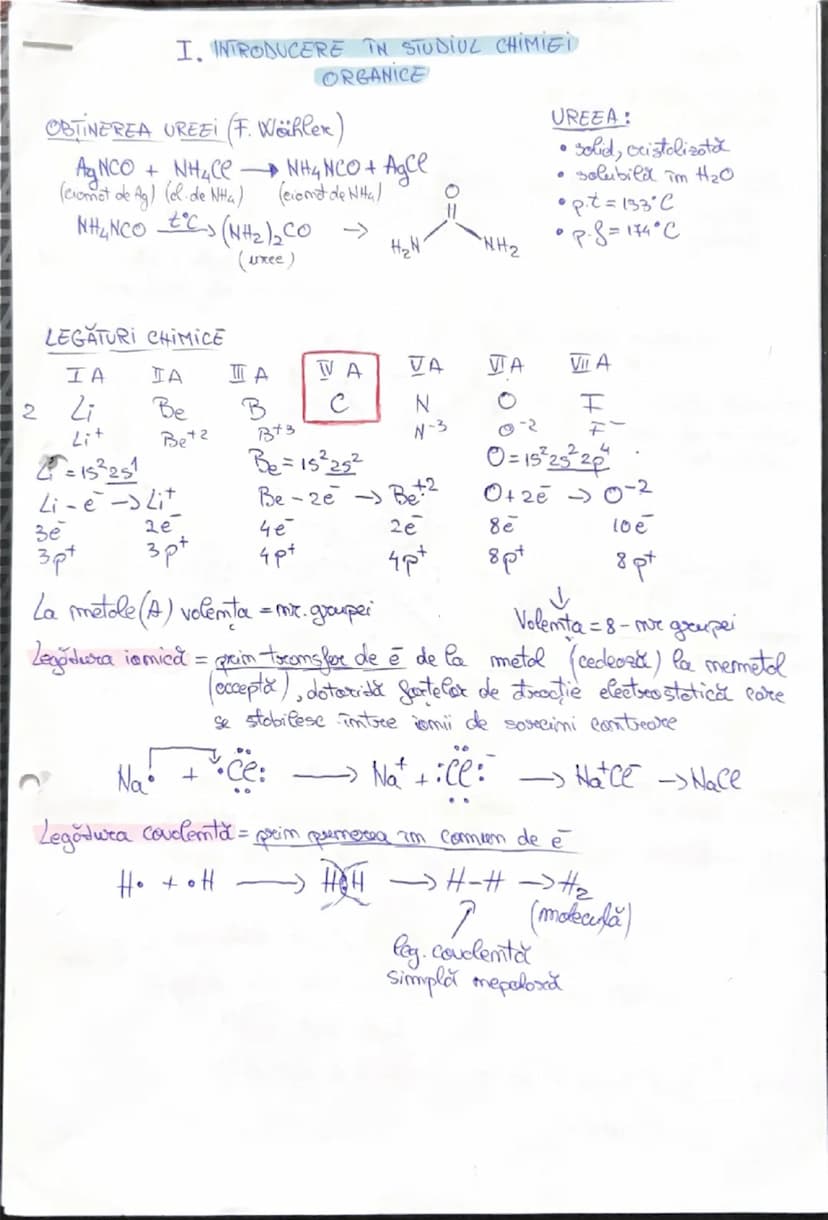 I. INTRODUCERE ÎN STUDIUL CHIMIEI
ORGANICE
OBȚINEREA UREEI (F. Wöhler)
AgNCO + NH4Cl → NH4NCO + AgCl
(cianat de Ag) (cl. de NH4) (cianat de NH4)
NH4NCO t°C → (NH2)2CO →
(uree)
O
H2N NH2
UREEA:
• solid, cristalizată
• solubilă în H2O
• p.t = 133°C
• p.f = 174°C
LEGĂTURI CHIMICE
I A II A III A IV A V A VI A VII A
2 Li Be B C N O F
Li+ Be+2 B+3 N-3 O-2 F-
Li = 1s² 2s¹ Be = 1s² 2s² O = 1s² 2s² 2p⁴
Li - e- → Li+ Be - 2e- → Be+2 O + 2e- → O-2
3e- 2e- 4e- 2e- 8e- 10e-
3p+ 3p+ 4p+ 4p+ 8p+ 8p+
La metale (A) valența = nr. grupei
↓
Valența = 8 - nr grupei
Legătura ionică = prin transfer de e- de la metal (cedează) la nemetal
(acceptă), datorită forțelor de atracție electrostatică care
se stabilesc între ionii de sarcini contrare
Na• + •Cl: → Na+ + :Cl:- → Na+Cl- → NaCl
Legătura covalentă = prin punerea în comun de e-
H• + •H → H:H → H-H → H2
(moleculă)
leg. covalentă
simplă nepolară